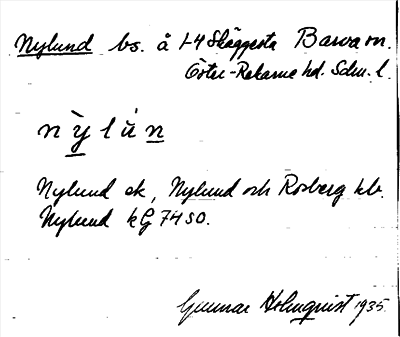 Nylund bs. å 1-4 Skäggesta Barva sn.
Öster-Rekarne hd. Sdm. l.
nỳlún
Nylund ek, Nylund och Rosberg kb.
Nylund kG 74 SO.
Gunnar Holmquist 1935